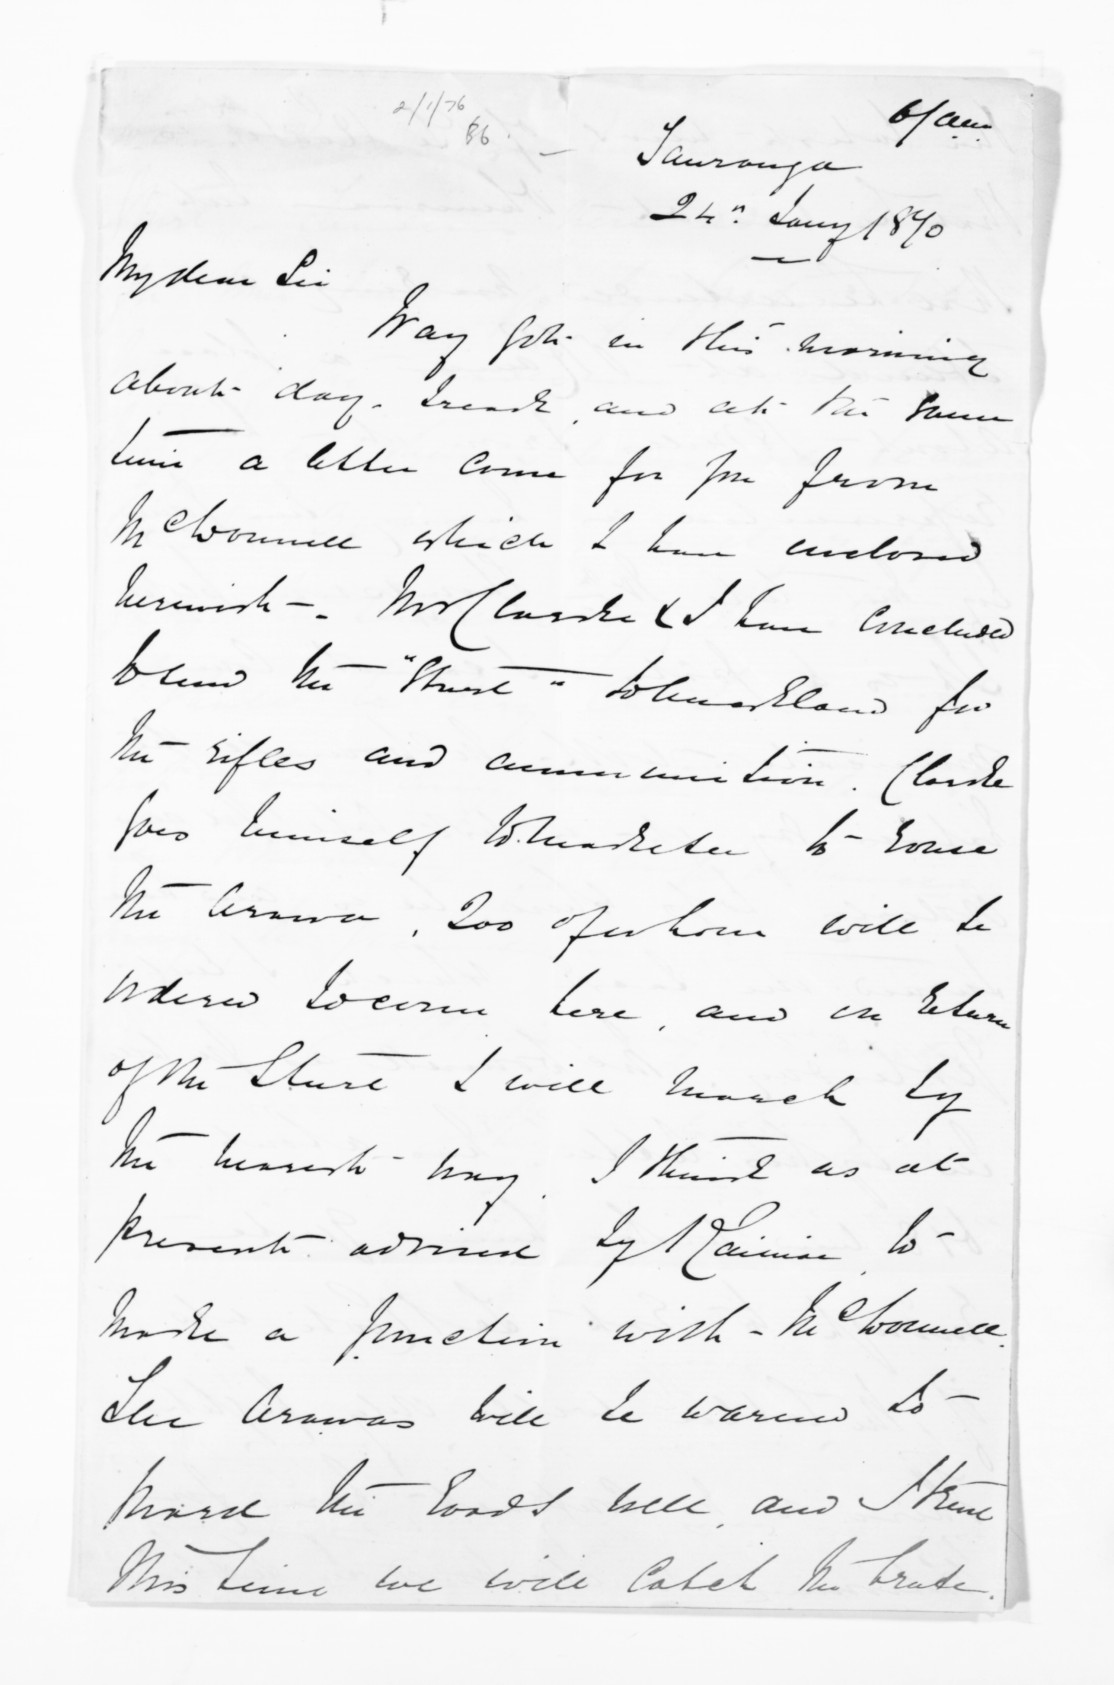 2/1/76
86
6/am
Tauranga
24th Jany 1870
My dear Sir
Way got in this morning
about day-break, and at the same
time a letter come for me from
McDonnell which I have enclosed
herewith-. Mr Clarke & I have concluded
to send the "Sturt" to Auckland for
the rifles and ammunition. Clarke
goes himself to Maketu to rouse
the Arawa, 200 of whom will be
ordered to come here, and on return
of the Sturt I will march by
the nearest way. I think as at
present advised by to
make a junction with - McDonnell.
The Arawas will be warned to
guard the roads well, and I trust
this time we will catch the brute.